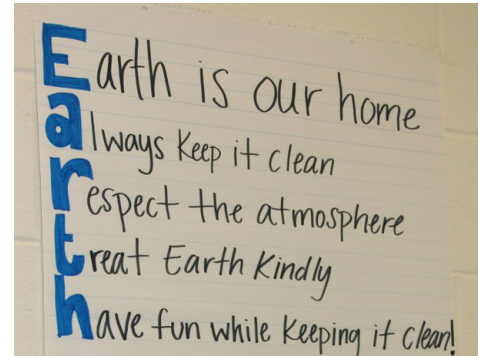 Earth is our home
always Keep it clean
respect the atmosphere
treat Earth Kindly
have fun while Keeping it clean!